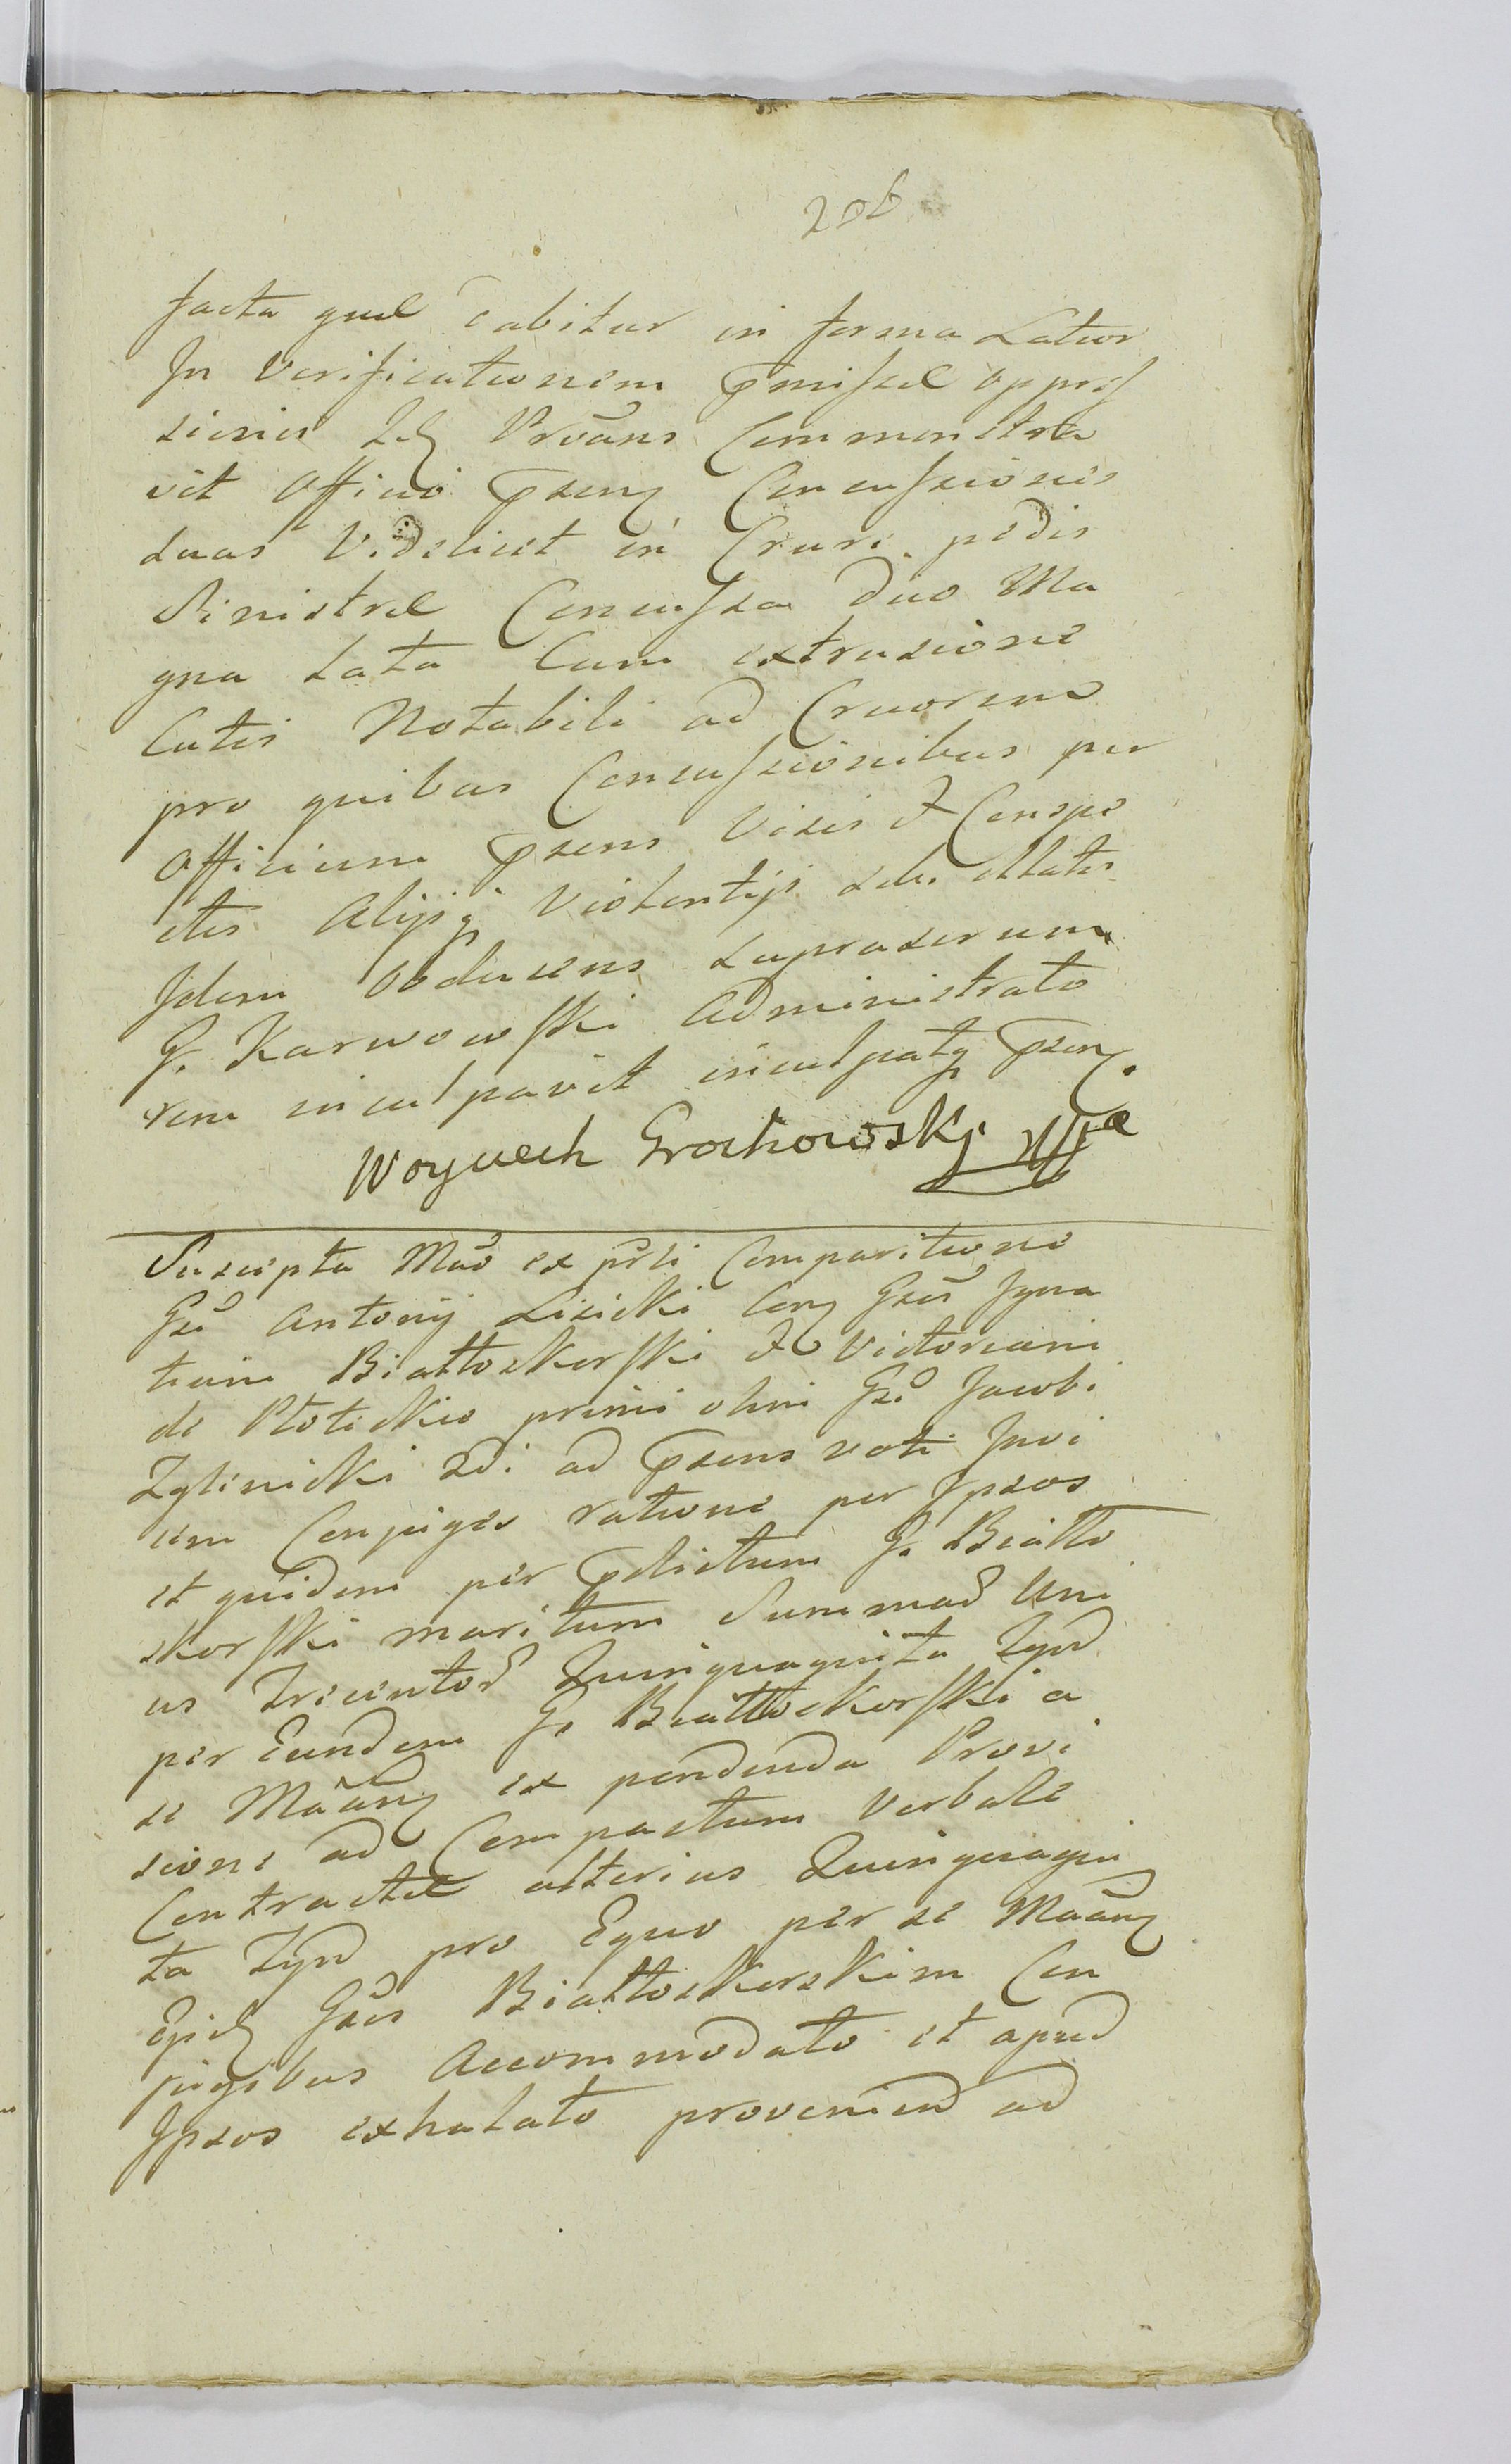 206
facta quae dabitur in forma Latior
In Verificationem p̄missae oppres
sionis Idq Prōans Commonstra
vit Officio p̄senq Concussiones
suas Videlicet in Crure pedis
Sinistrae Concussa duo Ma
gna Lata Cum extrusione
Cutis Notabili ad Cruorem
pro quibus Concussionibus per
Officium p̄sens Visis et Conspe
ctis Alijsq Violentijs sibi illatis
Idem Obducens Supraserum
G. Karwowski Administrato
rem inculpavit inculpatq p̄senq.
Woyciech Grochowski mp
Suscepta Māo ex pr̄li Comparitione
Gsi Antonij Lisicki Conq Gsos Igna
tium Białłoskorski et Victoriam
de Płotickie primi olim Gsi Jacobi
Zglinicki 2di ad p̄sens voti Invi
cem Conjuges ratione per Ipsos
et quidem per p̄dictum G. Białło
skorski maritum Summae Uni
us Trecentor Quinquaginta Tynf
per Eundem G. Białłoskorski a
se Māānq ex pendenda Provi
sione ad Compactum Verbale
Contractae alterius Quinquagin
ta Tynf pro Equo per se Māānq
Epidq Gsis Białłoskorskim Con
jugibus Accommodato et apud
Ipsos exhalato provenien ad